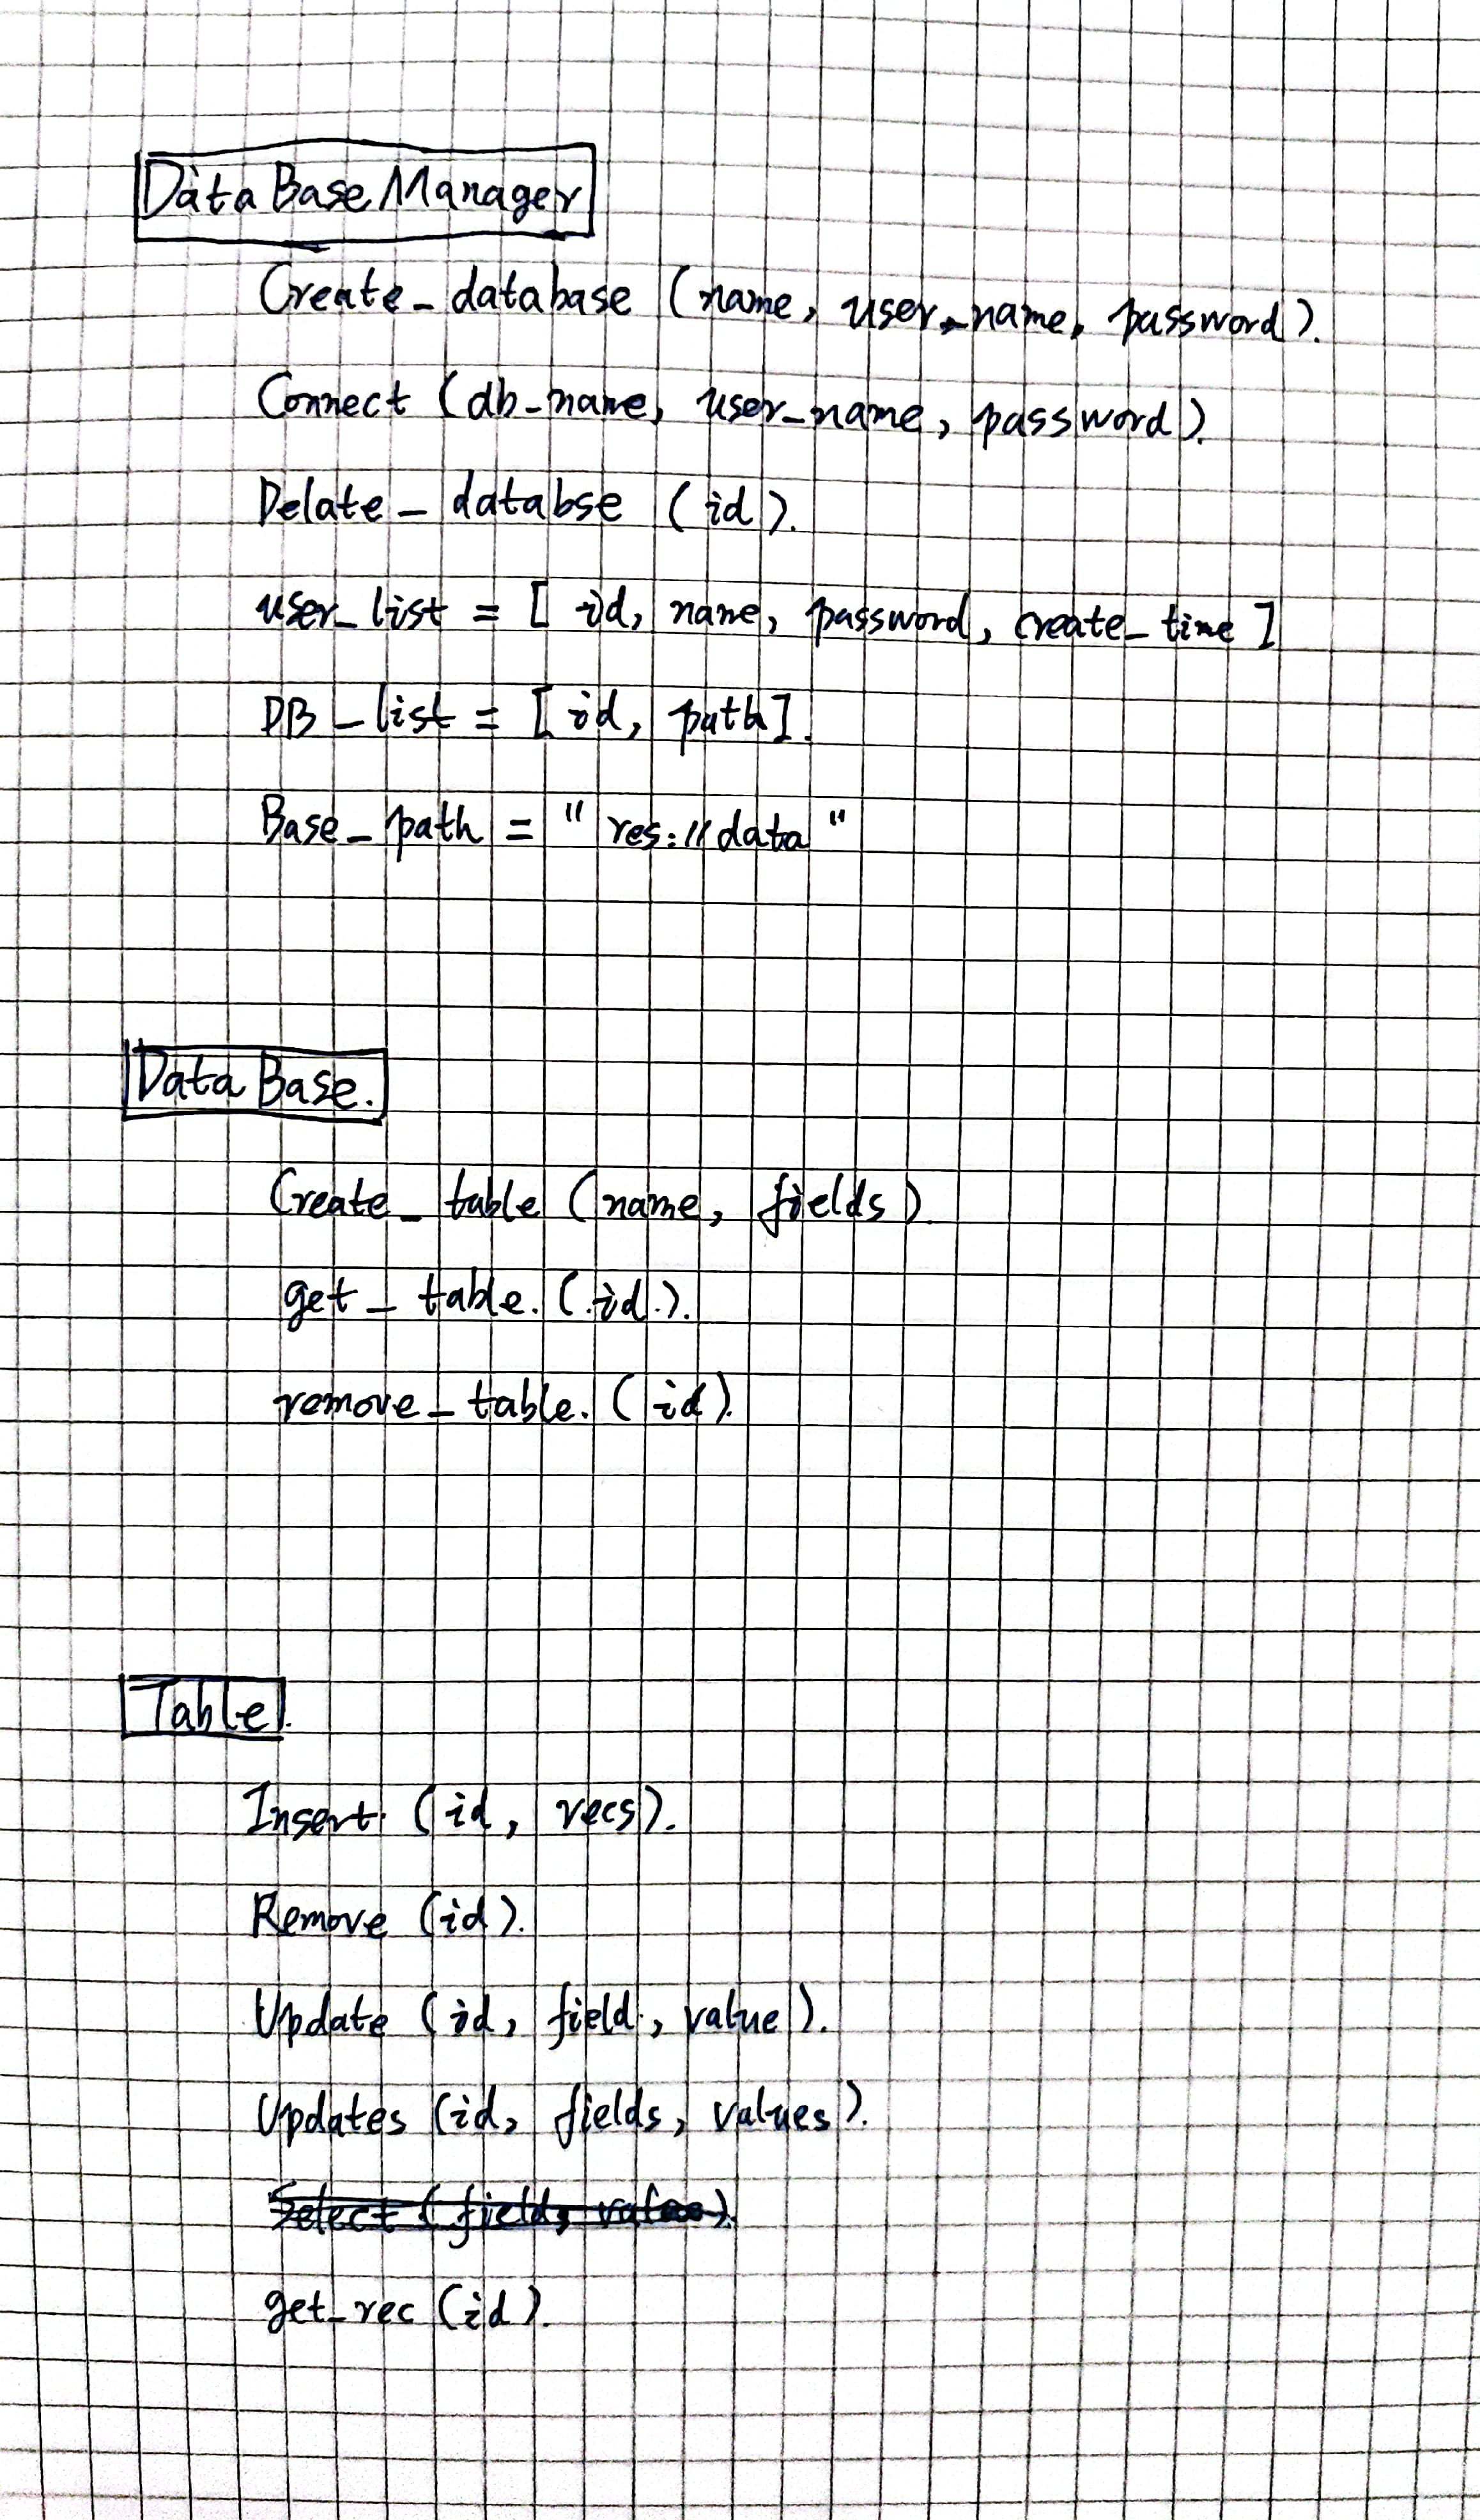 DataBaseManager
Create_database (name, user_name, password).
Connect (db_name, user_name, password).
Delate_databse (id).
user_list = [id, name, password, create_time]
DB_list = [id, path].
Base_path = "res://data"
DataBase.
Create_table (name, fields).
get_table. (.id.).
remove_table. (id).
Table.
Insert. (id, recs).
Remove (id).
Update (id, field., value).
Updates (id, fields, values).
Select (field,
get_rec (id).